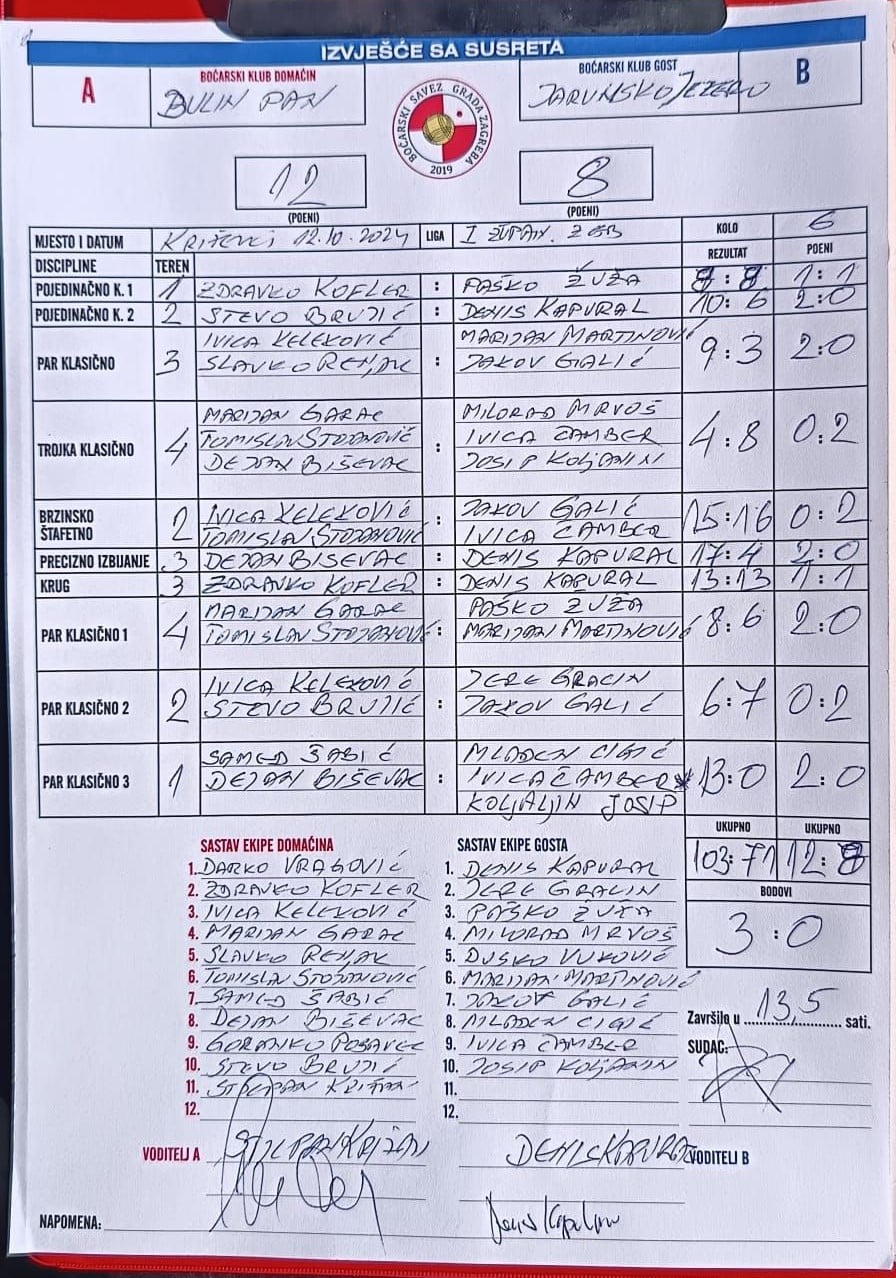 IZVJEŠĆE SA SUSRETA
A BOĆARSKI KLUB DOMAĆIN BOĆARSKI KLUB GOST B
BULIN PAN JARUNSKO JEZERO
BOĆARSKI SAVEZ GRADA ZAGREBA
2019
12 8
(POENI) (POENI)
MJESTO I DATUM 12.10.2024 LIGA I ŽUPAN. ZGB KOLO 6
DISCIPLINE TEREN REZULTAT POENI
POJEDINAČNO K. 1 1 ZDRAVKO KOFLER : PAŠKO ŽUŽA 8:8 1:1
POJEDINAČNO K. 2 2 STEVO BRUJIĆ : DENIS KAPURAL 10:6 2:0
IVICA KELEKOVIĆ MARIJAN MARTINOVIĆ
PAR KLASIČNO 3 SLAVKO REHAK : JAKOV GALIĆ 9:3 2:0
MARIJAN GARAC MILORAD MRVOŠ
TROJKA KLASIČNO 4 TOMISLAV STOJANOVIĆ : IVICA ČAMBER 4:8 0:2
DEJAN BIŠEVAC JOSIP KOLJANIN
BRZINSKO ŠTAFETNO 2 IVICA KELEKOVIĆ : JAKOV GALIĆ 15:16 0:2
TOMISLAV STOJANOVIĆ IVICA ČAMBER
PRECIZNO IZBIJANJE 3 DEJAN BIŠEVAC : DENIS KAPURAL 17:4 2:0
KRUG 3 ZDRAVKO KOFLER : DENIS KAPURAL 13:13 1:1
MARIJAN GARAC PAŠKO ŽUŽA
PAR KLASIČNO 1 4 TOMISLAV STOJANOVIĆ : MARIJAN MARTINOVIĆ 8:6 2:0
IVICA KELEKOVIĆ JERE GRACIN
PAR KLASIČNO 2 2 STEVO BRUJIĆ : JAKOV GALIĆ 6:7 0:2
SAMED ŠABIĆ MLADEN CIGIĆ
PAR KLASIČNO 3 1 DEJAN BIŠEVAC : IVICA ČAMBER * 13:0 2:0
KOLJALJIN JOSIP
UKUPNO UKUPNO
SASTAV EKIPE DOMAĆINA SASTAV EKIPE GOSTA
103:71 12:8
1. DARKO VRAGOVIĆ 1. DENIS KAPURAL
BODOVI
2. ZDRAVKO KOFLER 2. JERE GRACIN
3. IVICA KELEKOVIĆ 3. PAŠKO ŽUŽA
3:0
4. MARIJAN GARAC 4. MILORAD MRVOŠ
5. SLAVKO REHAK 5. DUŠKO VUKOVIĆ
6. TOMISLAV STOJANOVIĆ 6. MARIJAN MARTINOVIĆ
7. SAMED ŠABIĆ 7. JAKOV GALIĆ
8. DEJAN BIŠEVAC 8. MLADEN CIGIĆ
Završilo u 13,5 sati.
9. GORANKO POSAVEC 9. IVICA ČAMBER
SUDAC:
10. STEVO BRUJIĆ 10. JOSIP KOLJANIN
11. STJEPAN KRIŽAN 11.
12. 12.
VODITELJ A STJEPAN KRIŽAN DENIS KAPURAL VODITELJ B
Denis Kapural
NAPOMENA: